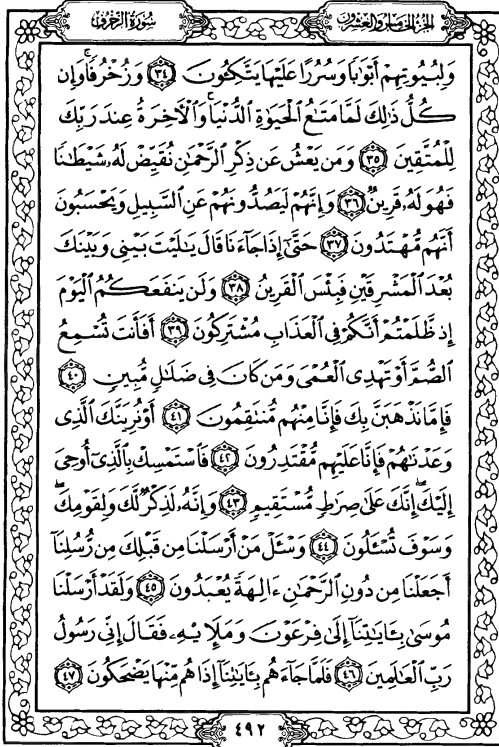 الجزء الخامس والعشرون
سورة الزخرف
وَلِبُيُوتِهِمْ أَبْوَٰبًا وَسُرُرًا عَلَيْهَا يَتَّكِـُٔونَ ٣٤ وَزُخْرُفًا ۚ وَإِن
كُلُّ ذَٰلِكَ لَمَّا مَتَـٰعُ الْحَيَوٰةِ الدُّنْيَا ۚ وَالْآخِرَةُ عِندَ رَبِّكَ
لِلْمُتَّقِينَ ٣٥ وَمَن يَعْشُ عَن ذِكْرِ الرَّحْمَـٰنِ نُقَيِّضْ لَهُۥ شَيْطَـٰنًا
فَهُوَ لَهُۥ قَرِينٌ ٣٦ وَإِنَّهُمْ لَيَصُدُّونَهُمْ عَنِ السَّبِيلِ وَيَحْسَبُونَ
أَنَّهُم مُّهْتَدُونَ ٣٧ حَتَّىٰٓ إِذَا جَآءَنَا قَالَ يَـٰلَيْتَ بَيْنِى وَبَيْنَكَ
بُعْدَ الْمَشْرِقَيْنِ فَبِئْسَ الْقَرِينُ ٣٨ وَلَن يَنفَعَكُمُ الْيَوْمَ
إِذ ظَّلَمْتُمْ أَنَّكُمْ فِى الْعَذَابِ مُشْتَرِكُونَ ٣٩ أَفَأَنتَ تُسْمِعُ
الصُّمَّ أَوْ تَهْدِى الْعُمْىَ وَمَن كَانَ فِى ضَلَـٰلٍ مُّبِينٍ ٤٠
فَإِمَّا نَذْهَبَنَّ بِكَ فَإِنَّا مِنْهُم مُّنتَقِمُونَ ٤١ أَوْ نُرِيَنَّكَ الَّذِى
وَعَدْنَـٰهُمْ فَإِنَّا عَلَيْهِم مُّقْتَدِرُونَ ٤٢ فَاسْتَمْسِكْ بِالَّذِىٓ أُوحِىَ
إِلَيْكَ ۖ إِنَّكَ عَلَىٰ صِرَٰطٍ مُّسْتَقِيمٍ ٤٣ وَإِنَّهُۥ لَذِكْرٌ لَّكَ وَلِقَوْمِكَ ۖ
وَسَوْفَ تُسْـَٔلُونَ ٤٤ وَسْـَٔلْ مَنْ أَرْسَلْنَا مِن قَبْلِكَ مِن رُّسُلِنَآ
أَجَعَلْنَا مِن دُونِ الرَّحْمَـٰنِ ءَالِهَةً يُعْبَدُونَ ٤٥ وَلَقَدْ أَرْسَلْنَا
مُوسَىٰ بِـَٔايَـٰتِنَآ إِلَىٰ فِرْعَوْنَ وَمَلَإِي۟هِۦ فَقَالَ إِنِّى رَسُولُ
رَبِّ الْعَـٰلَمِينَ ٤٦ فَلَمَّا جَآءَهُم بِـَٔايَـٰتِنَآ إِذَا هُم مِّنْهَا يَضْحَكُونَ ٤٧
٤٩٢